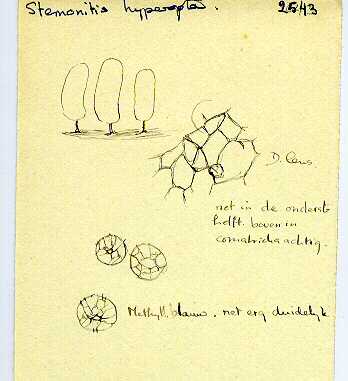 Stemonitis hyperopta. 2543
D. Lens
net in de onderste
helft. boven in
comatricha achtig.
Methyl. blauw. net erg duidelijk